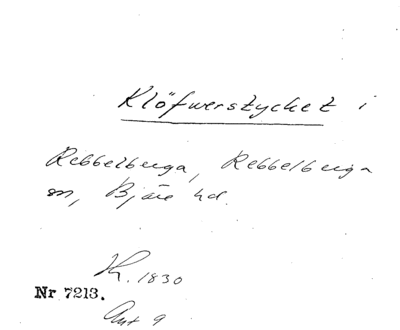 Klöfwerstycket i
Rebbelberga, Rebbelberga
sn, Bjäre hd.
K. 1830
Nr 7213.
Akt 9